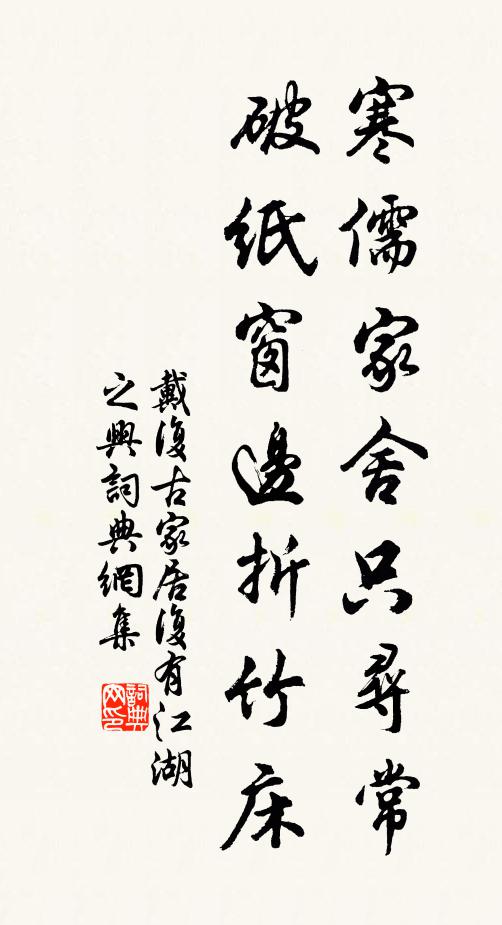 寒儒家舍只尋常
破紙窗邊折竹床
戴復古家居復有江湖
之興詞典網集
詞典网印